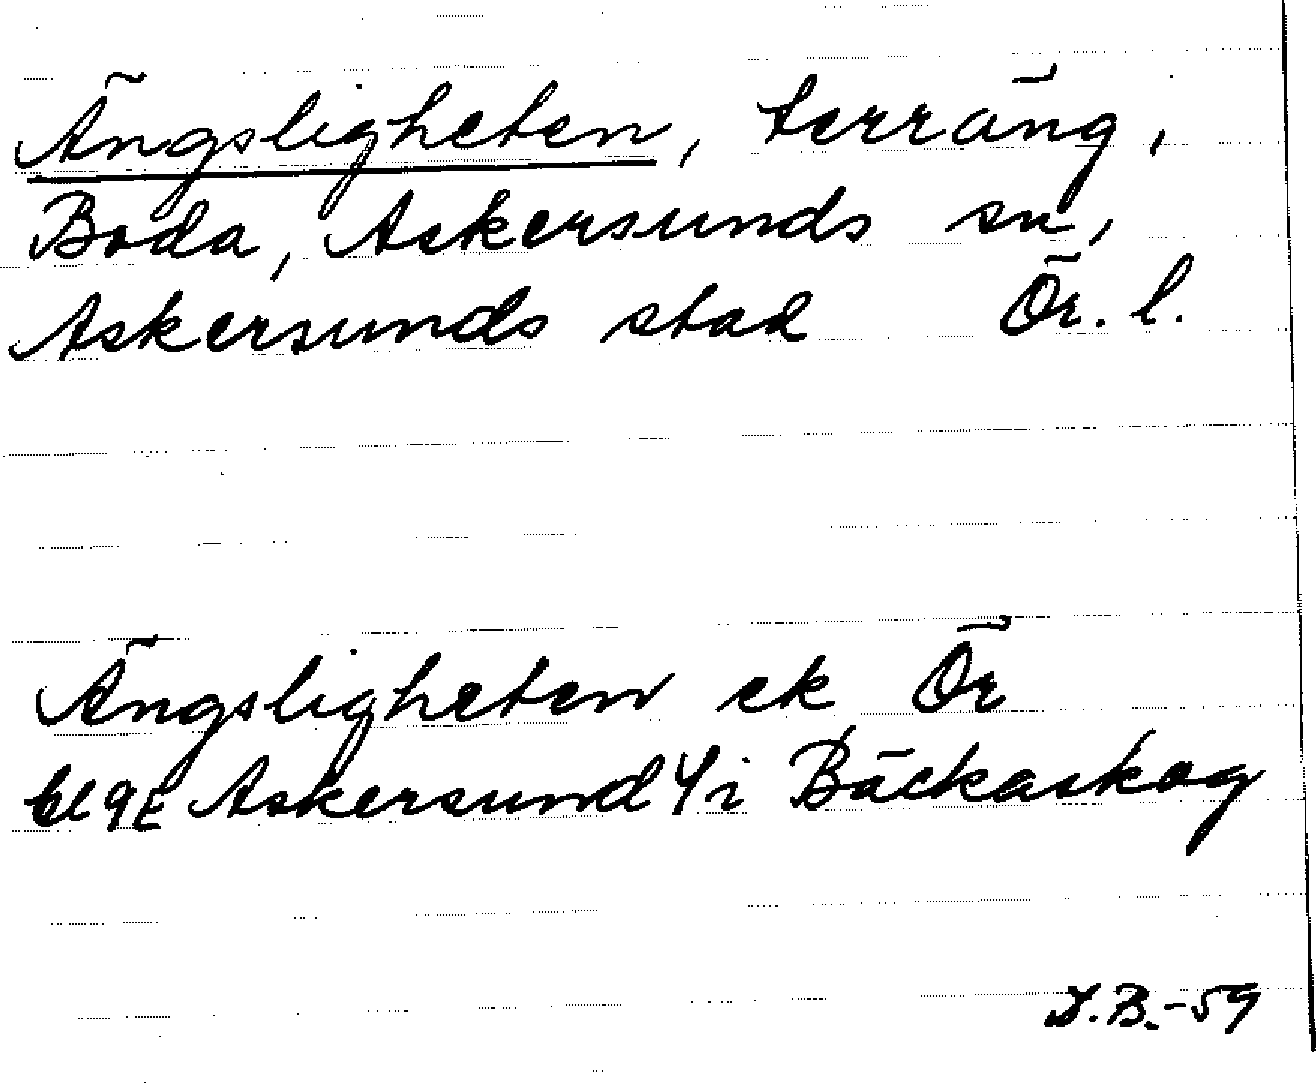 Ängsligheten, terräng,
Boda, Askersunds sn,
Askersunds stad Ör. l.
Ängsligheten ek Ör
bl 9E Askersund 4i Bäckaskog
I.B.-59